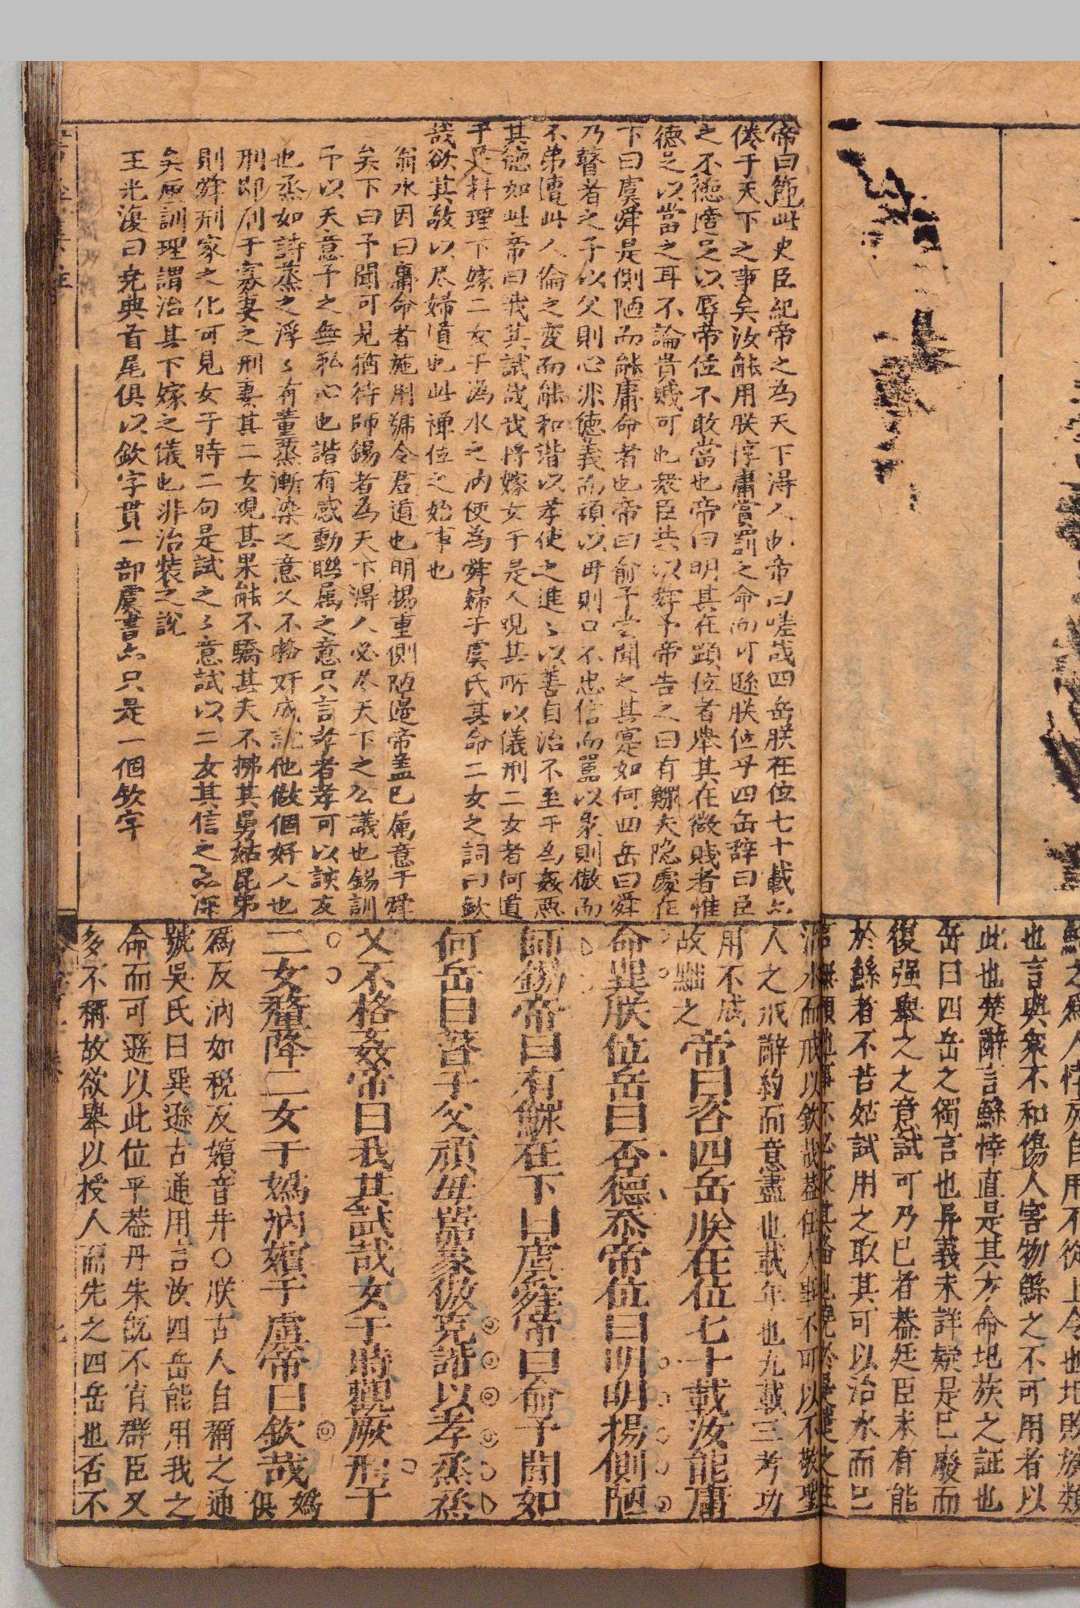 帝曰節此史臣紀帝之為天下得人也帝曰嗟哉四岳朕在位七十載
倦于天下之事矣汝能用朕惇庸賞罰之命而可遜朕位乎四岳辞曰臣
之不德適足以辱帝位不敢當也帝曰明其在顕位者舉其在微賤者惟
德足以當之耳不論貴賤可也衆臣共以辞予帝告之曰有鰥夫隐處在
下曰虞舜是側陋而能庸命者也帝曰俞予尝聞之其寔如何四岳曰舜
乃瞽者之子以父則心非德義而頑以母則口不忠信而嚚以象則傲而
不弟遭此人倫之変而能和諧以孝使之進〻以善自治不至于為姦惡
其德如此帝曰我其試哉我将嫁女于是人观其所以儀刑二女者何道
于是料理下嫁二女于溈水之汭使為舜婦于虞氏其命二女之詞曰欽
哉欲其敬以尽婦道也此禅位之始事也
翁水因曰庸命者施用号令君道也明揚重側陋邊帝盖已属意于舜
矣下曰予聞可見猶待師錫者為天下得人必尽天下之公議也錫訓
予以天意予之無私心也諧有感動聮属之意只言孝者孝可以該友
也烝如詩蒸之浮〻有薫蒸漸染之意乂不格奸成就他做個好人也
刑即刑于寡妻之刑妻其二女观其果能不驕其夫不拂其舅姑昆弟
則舜刑家之化可見女于時二句是試之〻意試以二女其信之
矣 訓理謂治其下嫁之儀也非治装之説
王光復曰堯典首尾俱以欽字貫一部虞書亦只是一個欽字
也言與衆不和傷人害物鯀之不可用者以
此也楚辭言鯀悻直是其方命圯族之証也
岳曰四岳之獨言也异義未詳疑是已廢而
復强舉之之意試可乃已者葢廷臣未有能
於鯀者不若姑試用之取其可以治水而已
人之 辭約而意盡也載年也九載三考功
用不成
故黜之
帝曰咨四岳朕在位七十載汝能庸
命巽朕位岳曰否德忝帝位曰明明揚側陋
師錫帝曰有鰥在下曰虞舜帝曰俞予聞如
何岳曰瞽子父頑母嚚象傲克諧以孝烝烝
乂不格姦帝曰我其試哉女于時觀厥刑于
二女釐降二女于嬀汭嬪于虞帝曰欽哉
嬀
俱
爲反汭如税反嬪音井〇朕古人自稱之通
號吳氏曰巽遜古通用言汝四岳能用我之
命而可遜以此位乎葢丹朱旣不肖群臣又
多不稱故欲舉以授人而先之四岳也否不